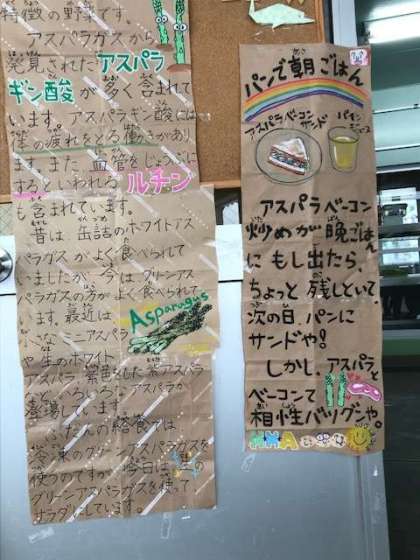 特徴の野菜です。
アスパラガスから
発見されたアスパラ
ギン酸が多く含まれて
います。アスパラギン酸には
体の疲れをとる働きがあり
ます。また、血管をじょうぶに
するといわれるルチン
も含まれています。
昔は缶詰のホワイトアス
パラガスがよく食べられて
いましたが、今はグリーンアス
パラガスの方がよく食べられて
います。最近は
Asparagus
小さなミニアスパラ
や生のホワイト
アスパラ、紫色をした紫アスパラ
など、いろいろなアスパラが
登場しています。
ふだんの給食では、
冷凍のグリーンアスパラガスを
使うのですが、今日は
グリーンアスパラガスを使って
サラダにしています。
パンで朝ごはん
アスパラベーコン
サンド
パイン
ジュース
アスパラベーコン
炒めが晩ごはん
にもし出たら、
ちょっと残しといて、
次の日、パンに
サンドや!
しかし、アスパラと
ベーコンて
相性バツグンや。